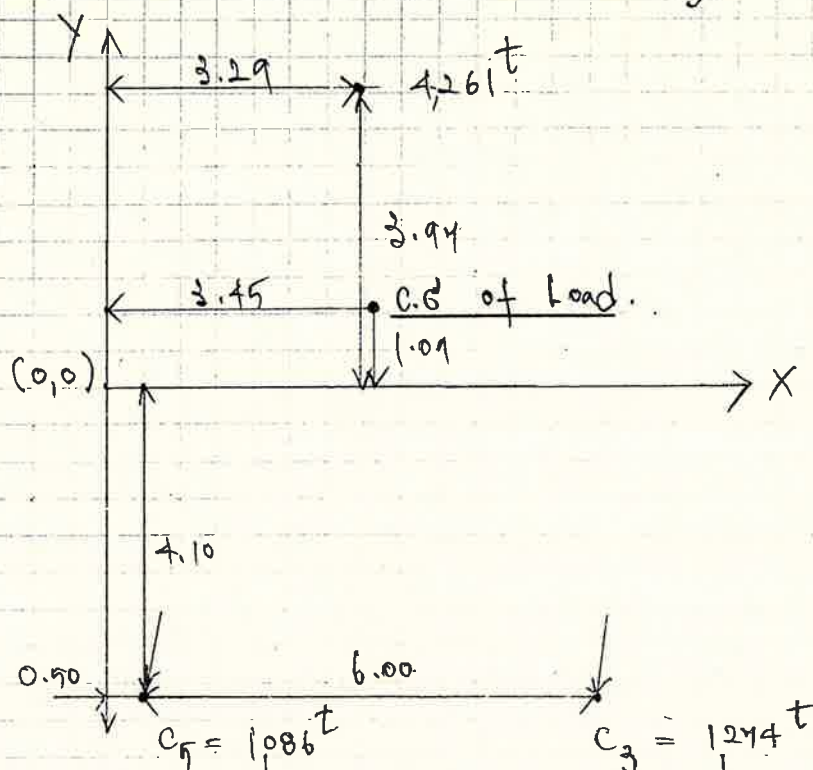 Y
3.29
4,261 t
3.97
3.45
C.G of Load.
1.09
(0,0)
X
4.10
0.50
6.00
C5 = 1,086 t
C3 = 1,274 t